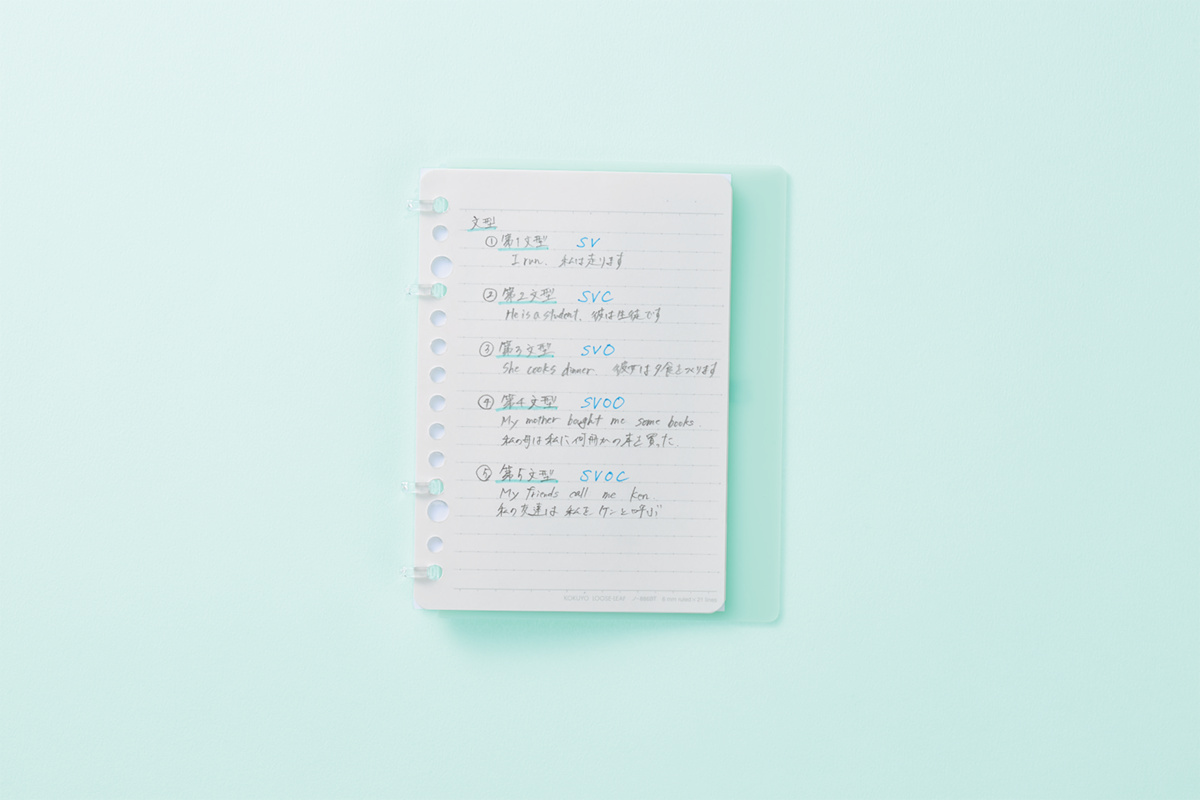 文型
① 第1文型 SV
I run. 私は走ります
② 第2文型 SVC
He is a student. 彼は生徒です
③ 第3文型 SVO
She cooks dinner. 彼女は夕食をつくります
④ 第4文型 SVOO
My mother bought me some books.
私の母は私に何冊かの本を買った.
⑤ 第5文型 SVOC
My friends call me Ken.
私の友達は私をケンと呼ぶ
KOKUYO LOOSE-LEAF 6 mm ruled × 21 lines